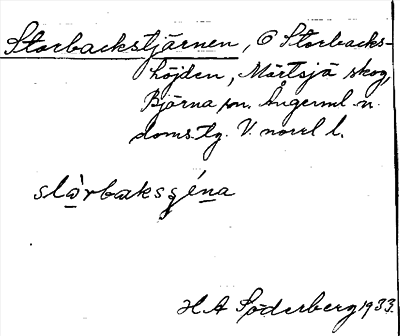 Storbackstjärnen, O Storbacks-
höjden, Märtsjä skog,
Björna sn. Ångerml. n.
doms. tg. V. norrl l.
stòrbaksɟéna
H A Söderberg 1933.